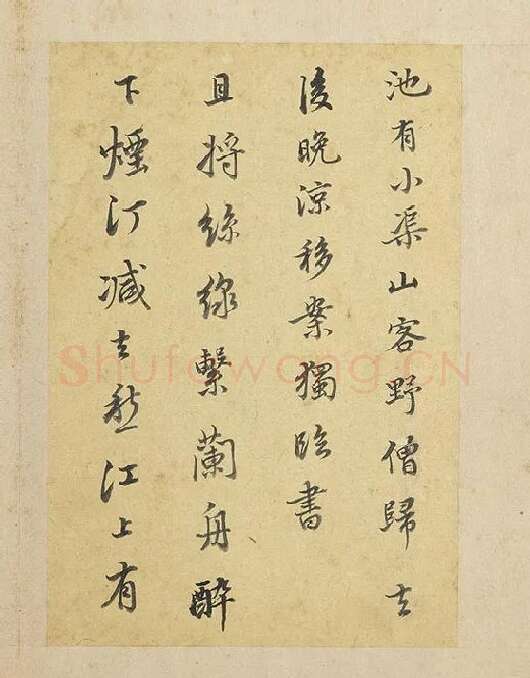 池有小渠山客野僧歸去
後晚涼移案獨臨書
且將絲繫蘭舟醉
下煙汀減去愁江上有
Shufawang.CN